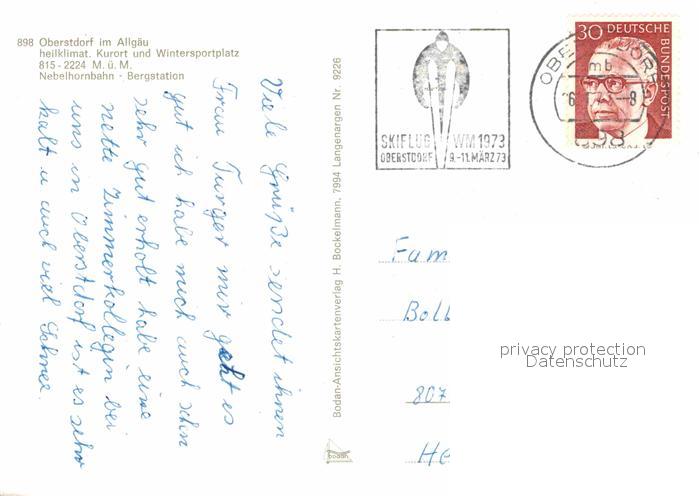 898 Oberstdorf im Allgäu
heilklimat. Kurort und Wintersportplatz
815 - 2224 M. ü. M.
Nebelhornbahn - Bergstation
Viele Grüße sendet ihnen
Frau Turger mir geht es
gut ich habe mich auch schn
sehr gut erholt habe eine
nette Zimmerkollegin bei
uns in Oberstdorf ist es sehr
kalt u auch viel Schnee.
Bodan-Ansichtskartenverlag H. Bockelmann, 7994 Langenargen Nr. 9226
bodan
SKIFLUG WM 1973
OBERSTDORF 9.-11. MÄRZ 73
30 DEUTSCHE BUNDESPOST
mb
-8
898
Fam
Boll
807
He
privacy protection
Datenschutz